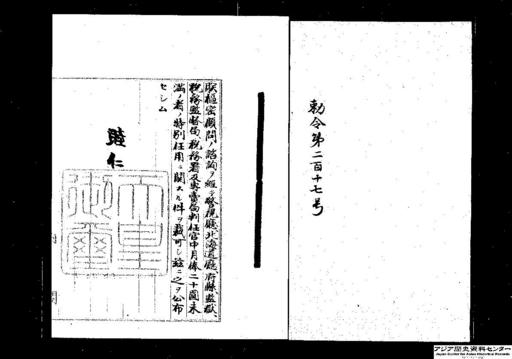 勅令第二百十七号
朕樞密顧問ノ諮詢ヲ經テ警視廳北海道廳府縣監獄、
稅務監督局、稅務署及專賣局判任官中月俸二十圓未
滿ノ者ノ特別任用ニ關スル件ヲ裁可シ茲ニ之ヲ公布
セシム
睦仁
天皇
御璽
アジア歴史資料センター
Japan Center for Asian Historical Records